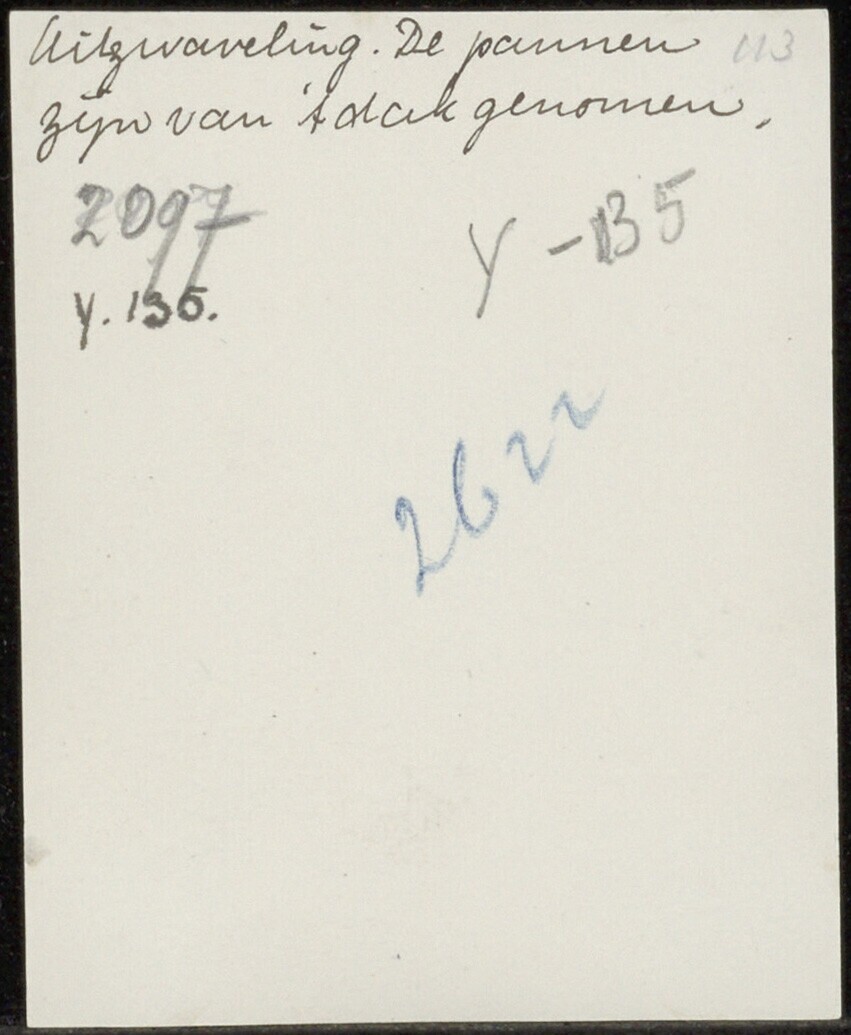 Uitzwaveling. De pannen 113
zijn van 't dak genomen.
2097
Y - 135
y. 135.
2622